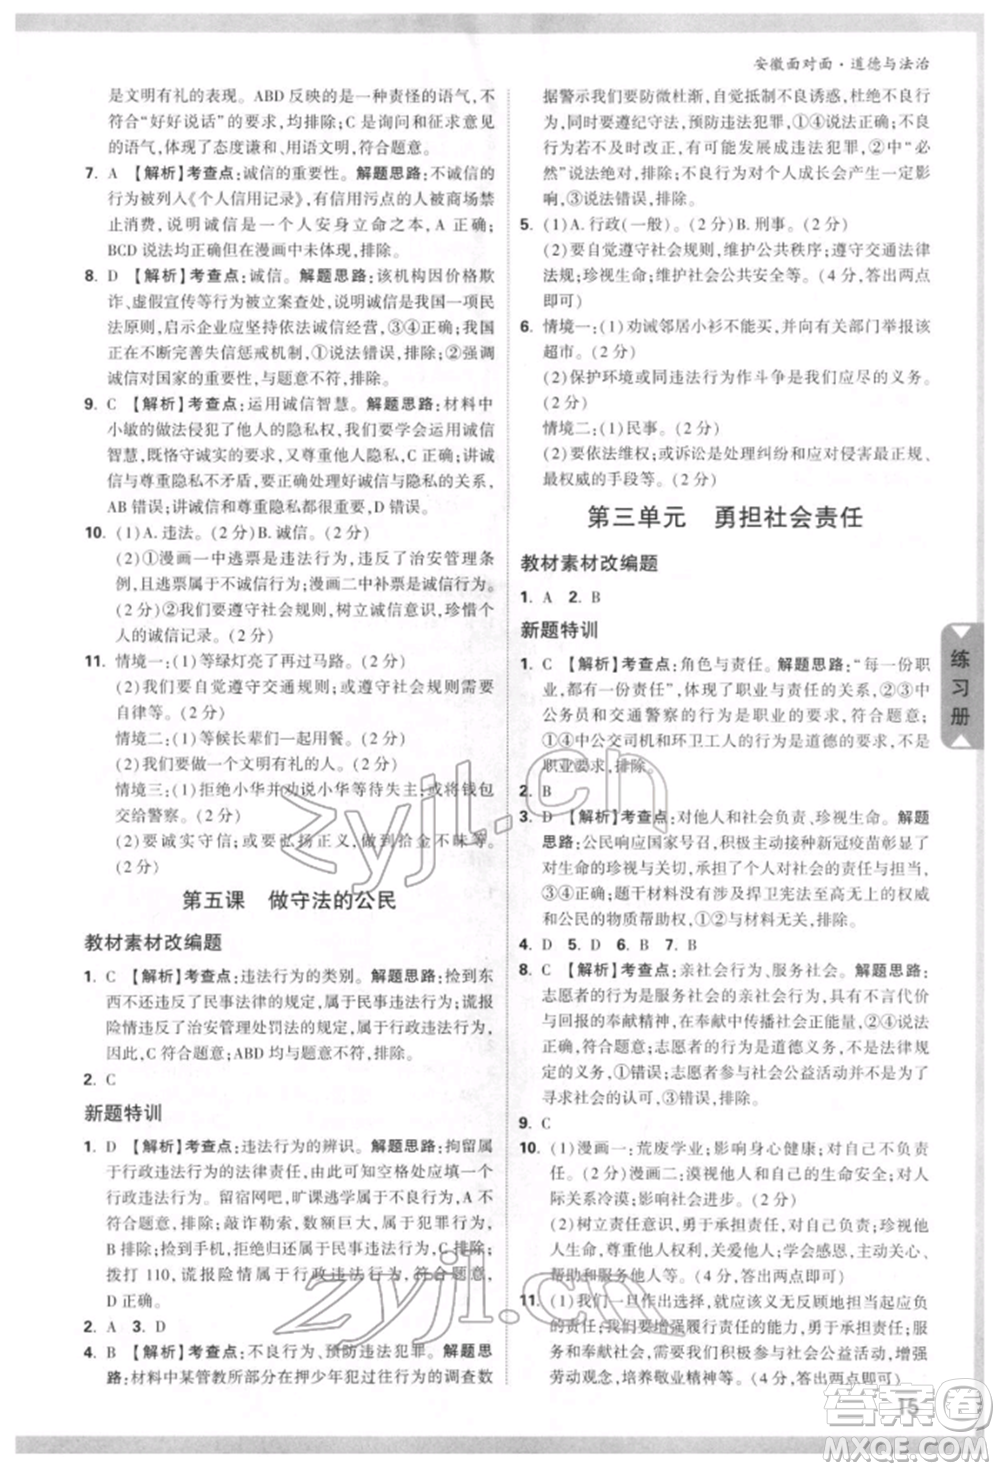 安徽面对面·道德与法治
是文明有礼的表现。ABD 反映的是一种责怪的语气，不
符合“好好说话”的要求，均排除；C 是询问和征求意见
的语气，体现了态度谦和、用语文明，符合题意。
7. A 【解析】考查点：诚信的重要性。解题思路：不诚信的
行为被列入《个人信用记录》，有信用污点的人被商场禁
止消费，说明诚信是一个人安身立命之本，A 正确；
BCD 说法均正确，但在漫画中未体现，排除。
8. D 【解析】考查点：诚信。解题思路：该机构因价格欺
诈、虚假宣传等行为被立案查处，说明诚信是我国一项民
法原则，启示企业应坚持依法诚信经营，③④正确；我国
正在不断完善失信惩戒机制，①说法错误，排除；②强调
诚信对国家的重要性，与题意不符，排除。
9. C 【解析】考查点：运用诚信智慧。解题思路：材料中
小敏的做法侵犯了他人的隐私权，没有做到运用诚信
智慧，既恪守诚实的要求，又尊重他人隐私，C 正确；诚信
与尊重隐私不矛盾，要正确处理诚信与尊重隐私的关系，
AB 错误；讲诚信和尊重隐私都很重要，D 错误。
10. (1)A. 违法。(2 分)B. 诚信。(2 分)
(2)①漫画一中逃票是违法行为，违反了治安管理条
例，且逃票属于不诚信行为；漫画二中补票是诚信行为。
(2 分)②我们要遵守社会规则，树立规则意识，珍惜个
人的诚信记录。(2 分)
11. 情境一：(1)等绿灯亮了再过马路。(2 分)
(2)我们要自觉遵守交通规则，遵守社会规则需要
自律等。(2 分)
情境二：(1)等候长辈们一起用餐。(2 分)
(2)我们要做一个文明有礼的人。(2 分)
情境三：(1)拒绝小华并劝说小华等待失主；或将钱包
交给警察。(2 分)
(2)要诚实守信；或要弘扬正义，做到拾金不昧等。
(2 分)
第五课　做守法的公民
教材素材改编题
1. C 【解析】考查点：违法行为的类别。解题思路：捡到东
西不还违反了民事法律的规定，属于民事违法行为；谎报
险情违反了治安管理处罚法的规定，属于行政违法行为，
因此，C 符合题意；ABD 均与题意不符，排除。
2. C
新题特训
1. D 【解析】考查点：违法行为的辨识。解题思路：拘留属
于行政违法行为的法律责任，由此可知空格处应填一个
行政违法行为。留宿网吧，旷课逃学属于不良行为，A 不
符合题意，排除；敲诈勒索，数额巨大，属于犯罪行为，B
不符合题意，排除；捡到手机，拒不归还属于民事违法行为，C 排除；
拨打 110，谎报险情属于行政违法行为，符合题意，
D 正确。
2. A　3. D
4. B 【解析】考查点：不良行为、预防违法犯罪。解题思
路：材料中某管教所部分在押少年犯过往行为的调查数
据警示我们要防微杜渐，自觉抵制不良诱惑，杜绝不良行
为，同时要遵纪守法，预防违法犯罪，①④符合题意；不良
行为若不加以矫正，有可能发展成违法犯罪，②中“必
然”说法绝对，排除；不良行为对个人成长会产生一定影
响，③说法错误，排除。
5. (1)A. 行政(一般)。(2 分)B. 刑事。(2 分)
(2)要自觉遵守社会规则，维护公共秩序；遵守交通法律
法规；珍视生命；维护社会公共安全等。(4 分，答出两点
即可)
6. 情境一：(1)劝诫邻居小衫不能买，并向有关部门举报该
超市。(2 分)
(2)保护环境或同违法行为作斗争是我们应尽的义务。
(2 分)
情境二：(1)民事。(2 分)
(2)要依法维权；或诉讼是处理纠纷和应对侵害最正规、
最权威的手段等。(2 分)
第三单元　勇担社会责任
教材素材改编题
1. A　2. B
新题特训
1. C 【解析】考查点：角色与责任。解题思路：“每一份职
业，都有一份责任”，体现了职业与责任的关系，②③中
公务员和交通警察的行为是职业的要求，符合题意；
①④中公交司机和环卫工人的行为是道德的要求，不是
职业要求，排除。
2. B
3. D 【解析】考查点：对他人和社会负责、珍视生命。解题
思路：公民响应国家号召，积极主动接种新冠疫苗彰显了
对生命的珍视与关切，承担了对他人和社会的责任，
③④正确；题干材料没有涉及捍卫宪法和法律的权威
和公民的物质帮助权，①②与材料无关，排除。
4. D　5. D　6. B　7. D
8. C 【解析】考查点：亲社会行为、服务社会。解题思路：
志愿者的行为是服务社会的亲社会行为，体现了不言代价
与回报的奉献精神，在奉献中传播社会正能量，②④说法
正确，符合题意；志愿者的行为是道德义务，不是法律规定
的义务，①错误，排除；志愿者参与社会公益活动并不是为了
寻求社会的认可，③错误，排除。
9. C
10. (1)漫画一：荒废学业；影响身心健康；对家庭不负责
任等。(2 分)漫画二：漠视他人和自己的生命安全；对人
际关系冷漠；影响社会进步。(2 分)
(2)树立责任意识，勇于承担责任；关爱他人；珍视他
人生命、尊重他人权利、关爱他人；与人为善、
帮助和服务他人等。(4 分，答出两点即可)
11. (1)我们一旦作出选择，就应该义无反顾地担当起应
负的责任，增强履行责任的能力等。(2 分)
15
练习册
zyjl.cn
zyjl.cn
答案圈
MXQE.COM